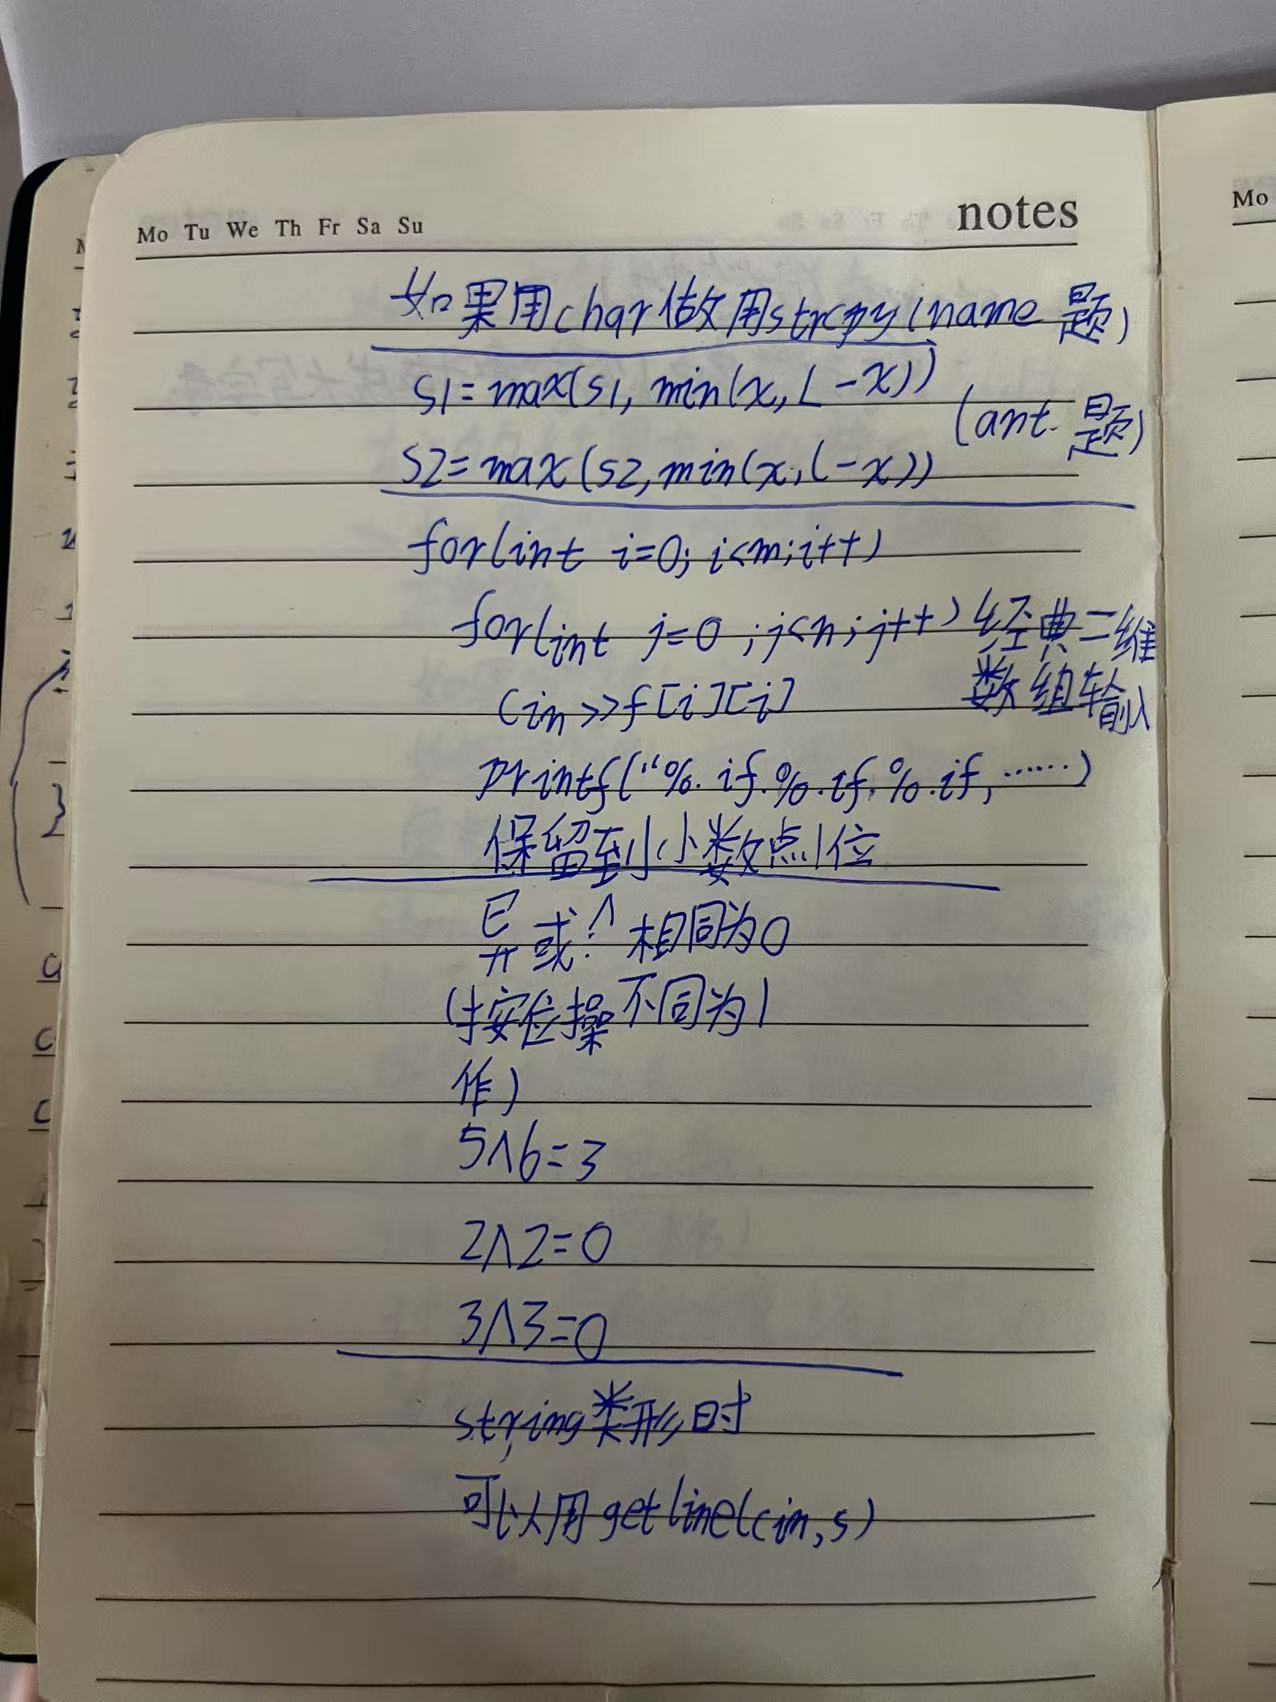 Mo Tu We Th Fr Sa Su
notes
Mo
如果用char做用strcpy(name题)
S1=max(s1, min(x, L-x))
(ant.题)
S2=max(s2,min(x,L-x))
for(int i=0; i<m;i++)
for(int j=0;j<n;j++) 经典二维
数组输入
Cin>>f[i][i]
printf("%.if.%.if.%.if,……)
保留到小小数点1位
异或:^ 相同为0
(按位操 不同为1
作)
5^6=3
2^2=0
3^3=0
string类形时
可以用getline(cin,s)